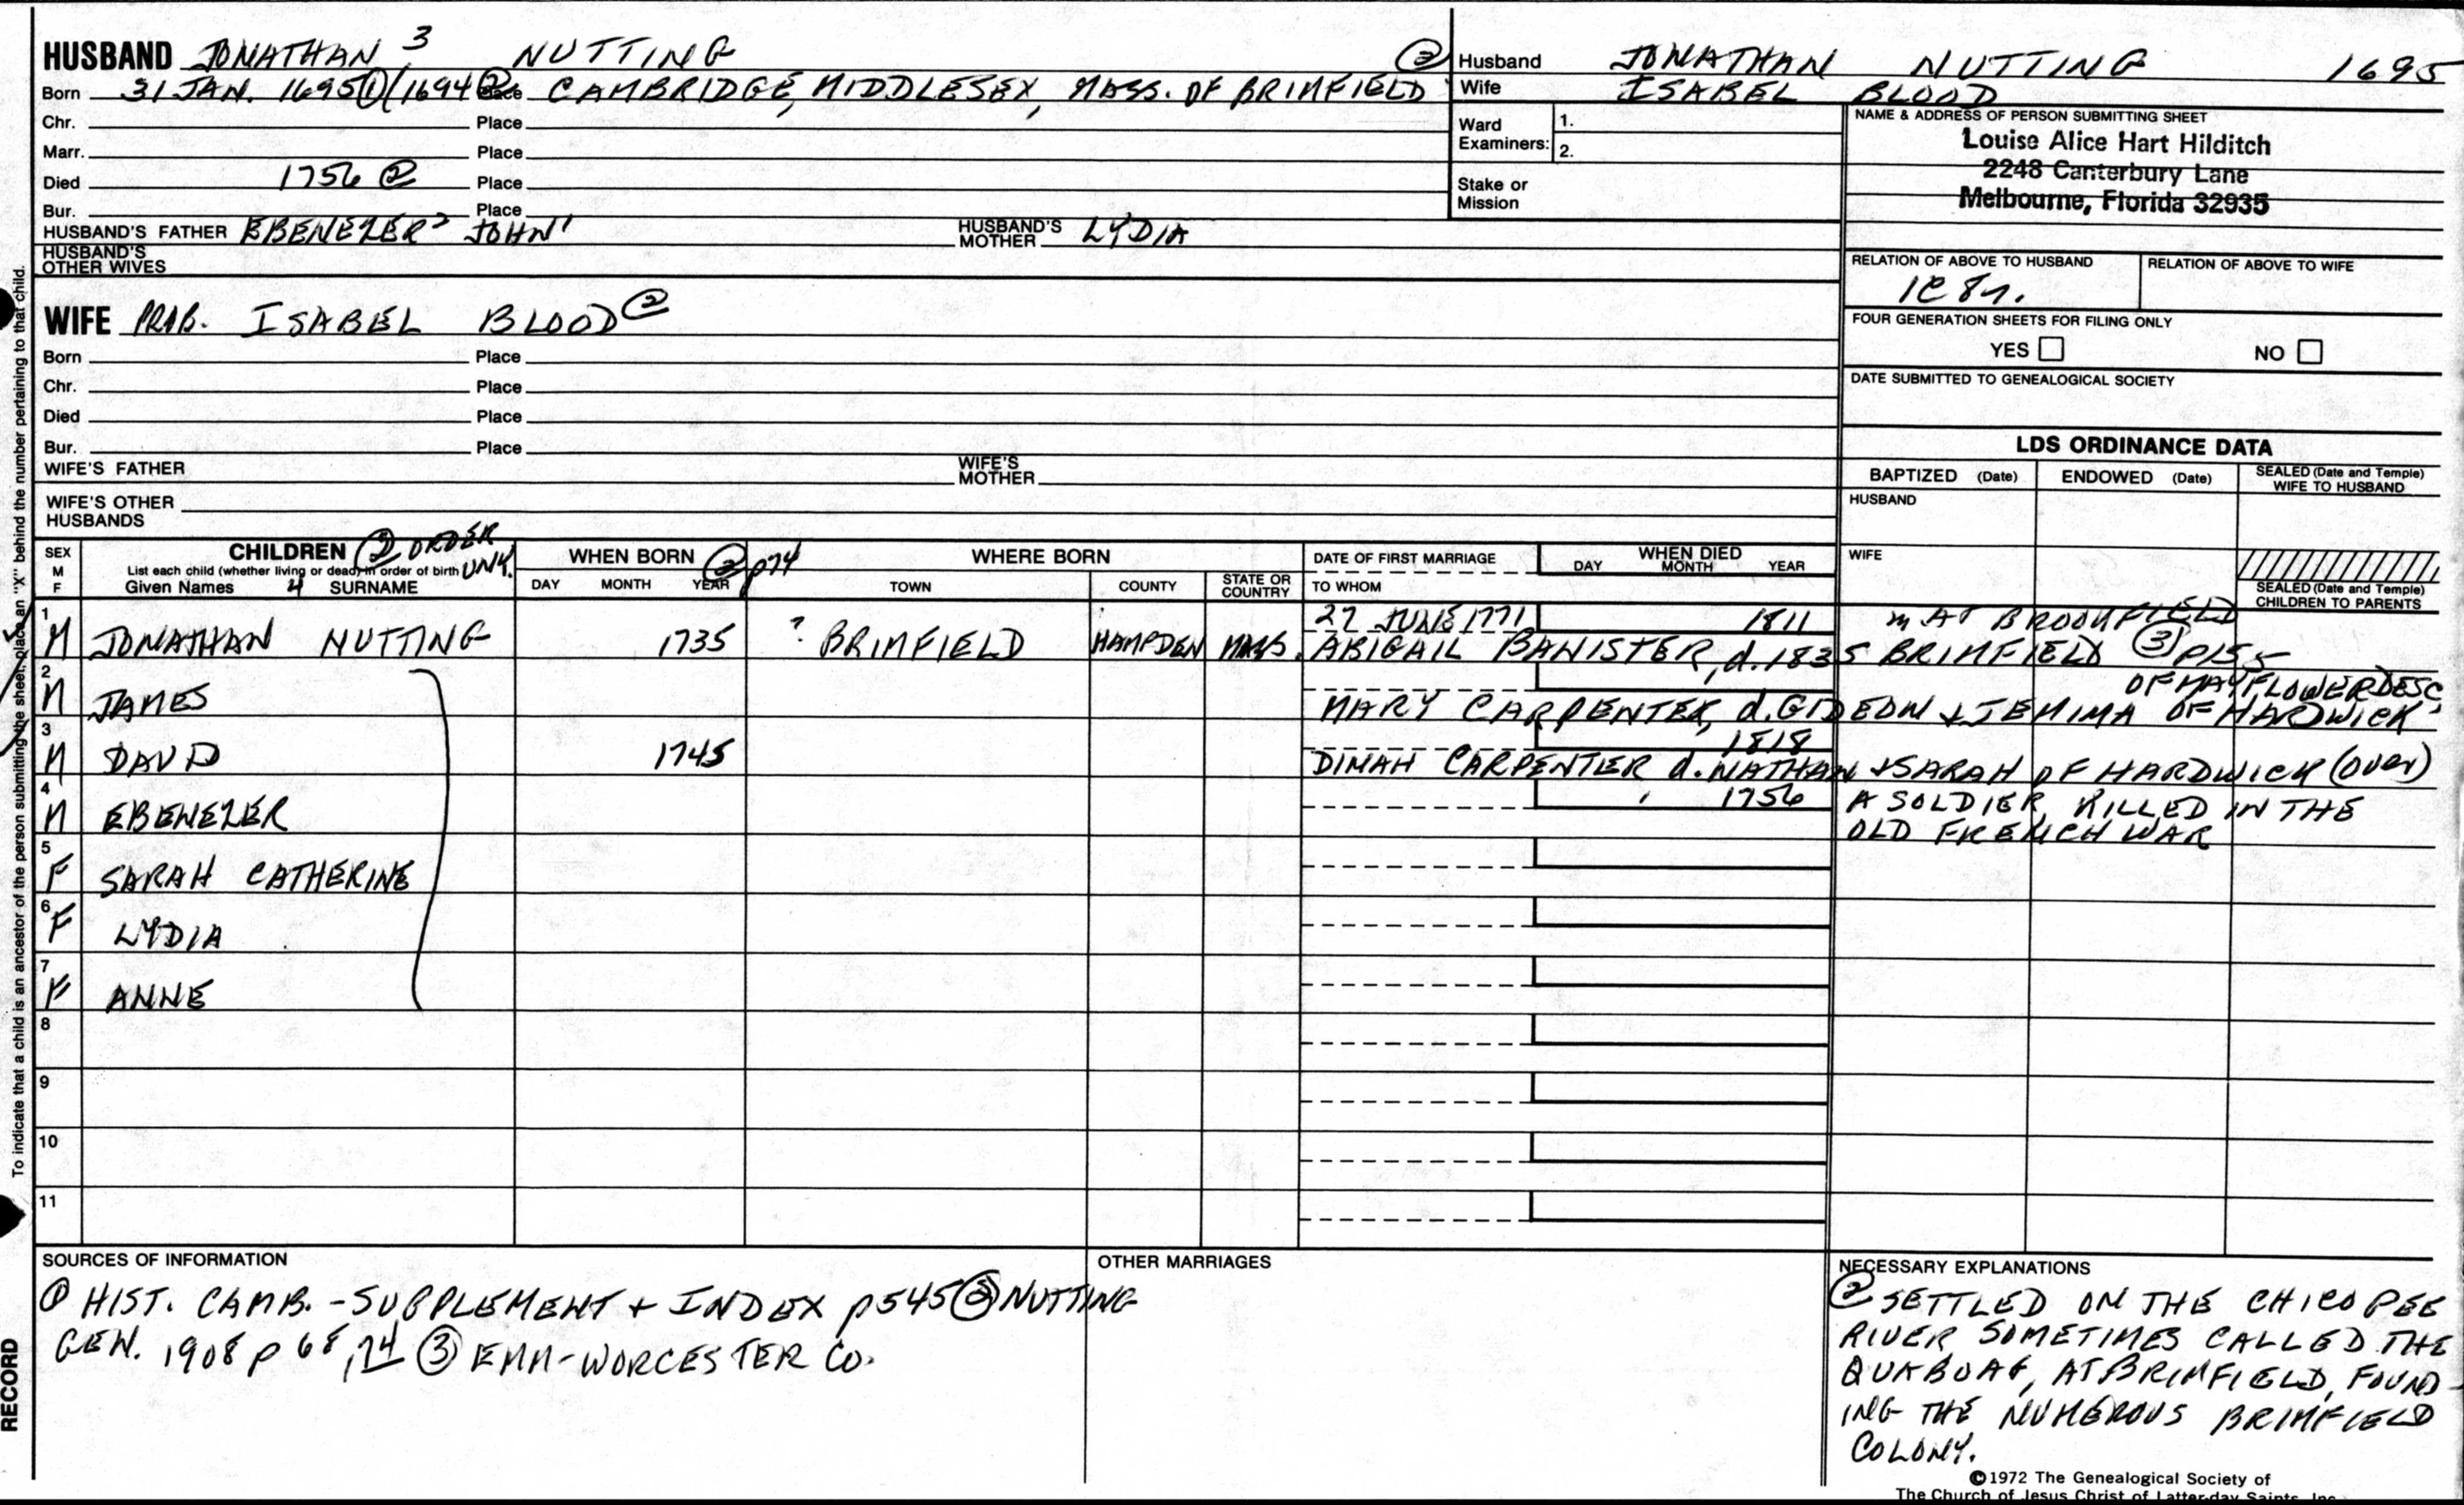 HUSBAND JONATHAN 3 NUTTING ②
Born 31 JAN. 1695①/1694② Place CAMBRIDGE, MIDDLESEX, MASS. OF BRIMFIELD
Chr. Place
Marr. Place
Died 1756 ② Place
Bur. Place
HUSBAND'S FATHER EBENEZER² JOHN¹ HUSBAND'S MOTHER LYDIA
HUSBAND'S OTHER WIVES
Husband JONATHAN NUTTING 1695
Wife ISABEL BLOOD
Ward Examiners: 1.
2.
Stake or Mission
NAME & ADDRESS OF PERSON SUBMITTING SHEET
Louise Alice Hart Hilditch
2248 Canterbury Lane
Melbourne, Florida 32935
RELATION OF ABOVE TO HUSBAND RELATION OF ABOVE TO WIFE
FOUR GENERATION SHEETS FOR FILING ONLY
YES NO
DATE SUBMITTED TO GENEALOGICAL SOCIETY
WIFE PROB. ISABEL BLOOD ②
Born Place
Chr. Place
Died Place
Bur. Place
WIFE'S FATHER WIFE'S MOTHER
WIFE'S OTHER HUSBANDS
LDS ORDINANCE DATA
BAPTIZED (Date) ENDOWED (Date) SEALED (Date and Temple) WIFE TO HUSBAND
HUSBAND
WIFE
SEALED (Date and Temple) CHILDREN TO PARENTS
SEX M F
CHILDREN ② ORDER UNK.
List each child (whether living or dead) in order of birth
Given Names 4 SURNAME
WHEN BORN ② p74
DAY MONTH YEAR
WHERE BORN
TOWN COUNTY STATE OR COUNTRY
DATE OF FIRST MARRIAGE
TO WHOM
WHEN DIED
DAY MONTH YEAR
1 27 JUNE 1771 1811 m AT BROOKFIELD
M JONATHAN NUTTING 1735 ? BRIMFIELD HAMPDEN MASS. ABIGAIL BANISTER, d. 1835 BRIMFIELD ③ p155
OF MAYFLOWER DESC
2 M JAMES MARY CARPENTER, d. GIDEON & JEMIMA OF HARDWICK
3 1818
M DAVID 1745 DINAH CARPENTER d. NATHAN & SARAH OF HARDWICK (over)
4 1756 A SOLDIER, KILLED IN THE
M EBENEZER OLD FRENCH WAR
5 F SARAH CATHERINE
6 F LYDIA
7 F ANNE
8
9
10
11
SOURCES OF INFORMATION
① HIST. CAMB. - SUPPLEMENT + INDEX p545 ② NUTTING
GEN. 1908 p 68, 74 ③ EMM-WORCESTER CO.
OTHER MARRIAGES
NECESSARY EXPLANATIONS
② SETTLED ON THE CHICOPEE
RIVER SOMETIMES CALLED THE
QUABOAG, AT BRIMFIELD, FOUND-
ING THE NUMEROUS BRIMFIELD
COLONY.
©1972 The Genealogical Society of
The Church of Jesus Christ of Latter-day Saints, Inc.
To indicate that a child is an ancestor of the person submitting the sheet, place an "X" behind the number pertaining to that child.
RECORD